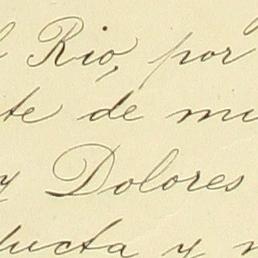 l Rio, por
te de mu
y Dolores
ducta y n